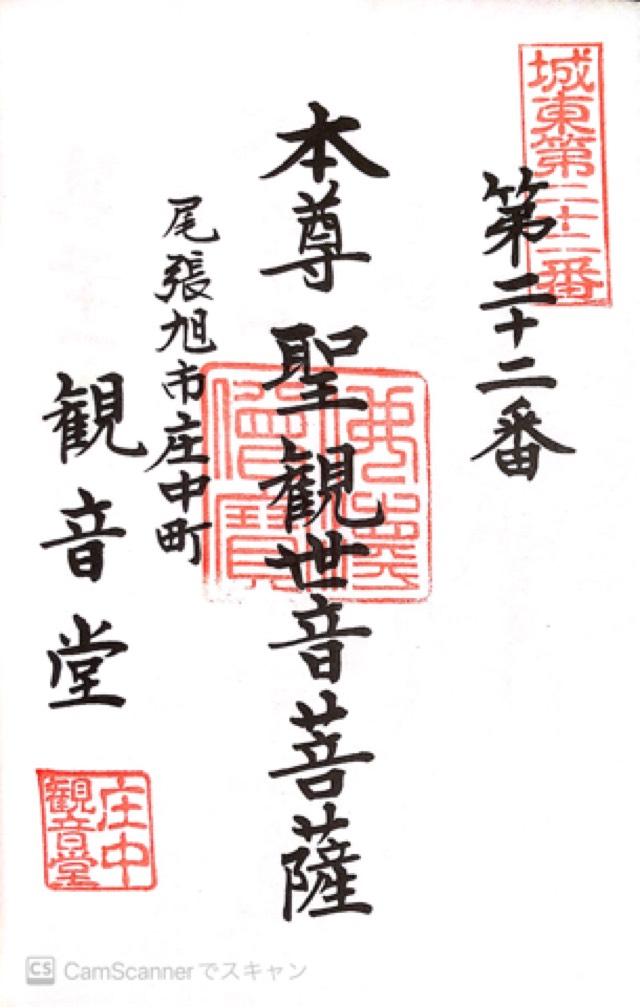 城東第二十二番
第二十二番
本尊聖観世音菩薩
佛法僧寳
尾張旭市庄中町
観音堂
庄中
観音堂
CS CamScannerでスキャン